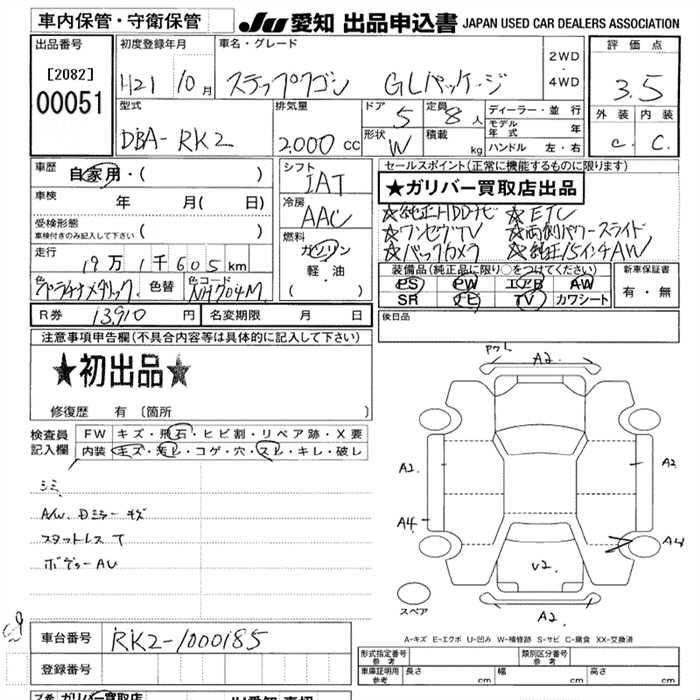 車内保管・守衛保管
JU 愛知 出品申込書 JAPAN USED CAR DEALERS ASSOCIATION
出品番号
[2082]
00051
初度登録年月
H21 10月
車名・グレード
ステップワゴン GLパッケージ
2WD
・
4WD
評価点
3.5
外装 内装
C. C.
型式
DBA-RK2
排気量
2,000 cc
ドア 5
形状 W
定員 8 人
積載 kg
ディーラー・並行
モデル年式 年
ハンドル 左・右
車歴 自家用・( )
車検 年 月( 日)
受検形態
(車検付きのみ記入して下さい) ( )
走行
19万1千605km
色 色替 色コード
NH704M
シフト
IAT
冷房
AAC
燃料
ガソリン
軽油
・( )
セールスポイント(正常に機能するものに限ります)
★ガリバー買取店出品
☆純正HDDナビ ☆ETC
☆ワンセグTV ☆両側パワースライド
☆バックカメラ ☆純正15インチAW
装備品(純正品に限り○をつけてください)
PS PW エアB AW
SR ナビ TV カワシート
新車保証書
有・無
R券 13,910 円 名変期限 月 日
後日品
注意事項申告欄(不具合内容等は具体的に記入して下さい)
★初出品★
修復歴 有 〔箇所 〕
検査員記入欄
FW キズ・飛石・ヒビ割・リペア跡・X要
内装 キズ・汚れ・コゲ・穴・スレ・キレ・破レ
シミ
A/W. Dミラー キズ
スタットレス T
A2.
A2.
A2
A4.
A4
V2.
A2.
スペア
A-キズ E-エクボ U-凹み W-補修跡 S-サビ C-腐食 XX-交換済
車台番号 RK2-1000185
登録番号
形式指定番号 参考
類別区分番号 参考
車庫証明用 参考 長さ cm 幅 cm 高さ cm
ガリバー買取店
JU愛知